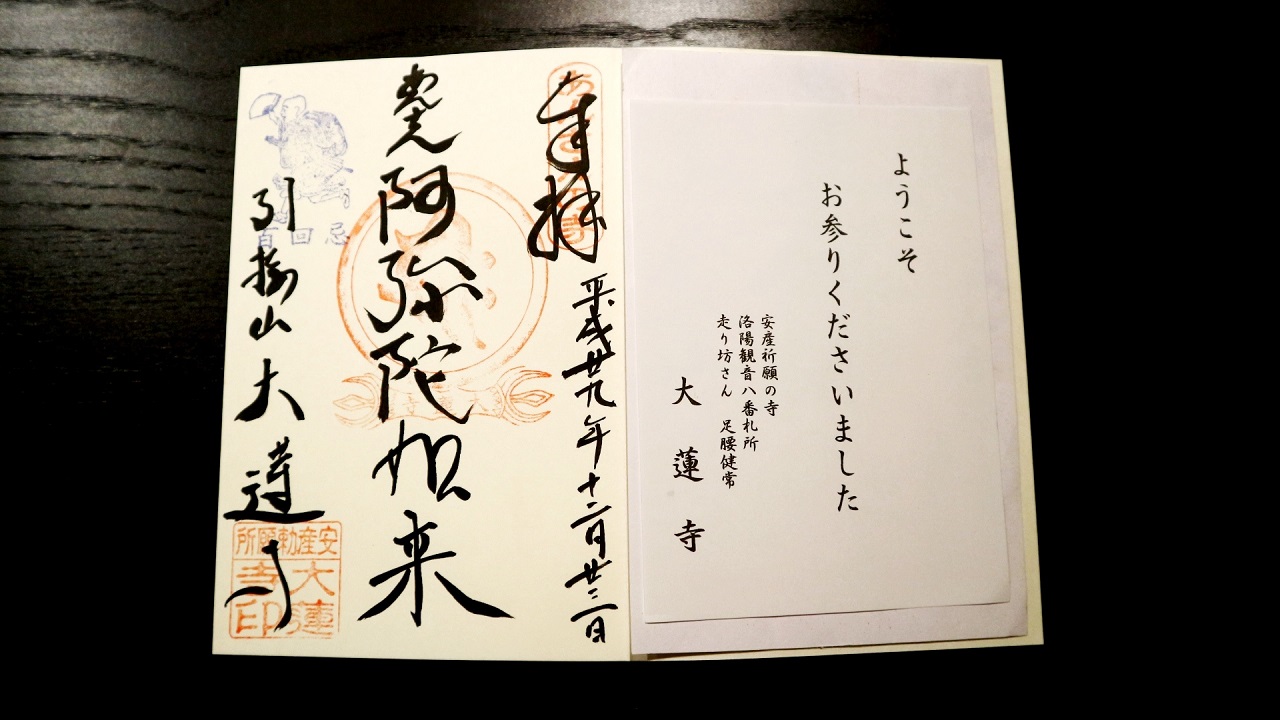 ようこそ
お参りくださいました
安産祈願の寺
洛陽観音八番札所
走り坊さん 足腰健常
大蓮寺
奉拝
平成廿九年十二月廿三日
阿弥陀如来
百回忌
引接山 大蓮寺
安産勅願所
大蓮寺印